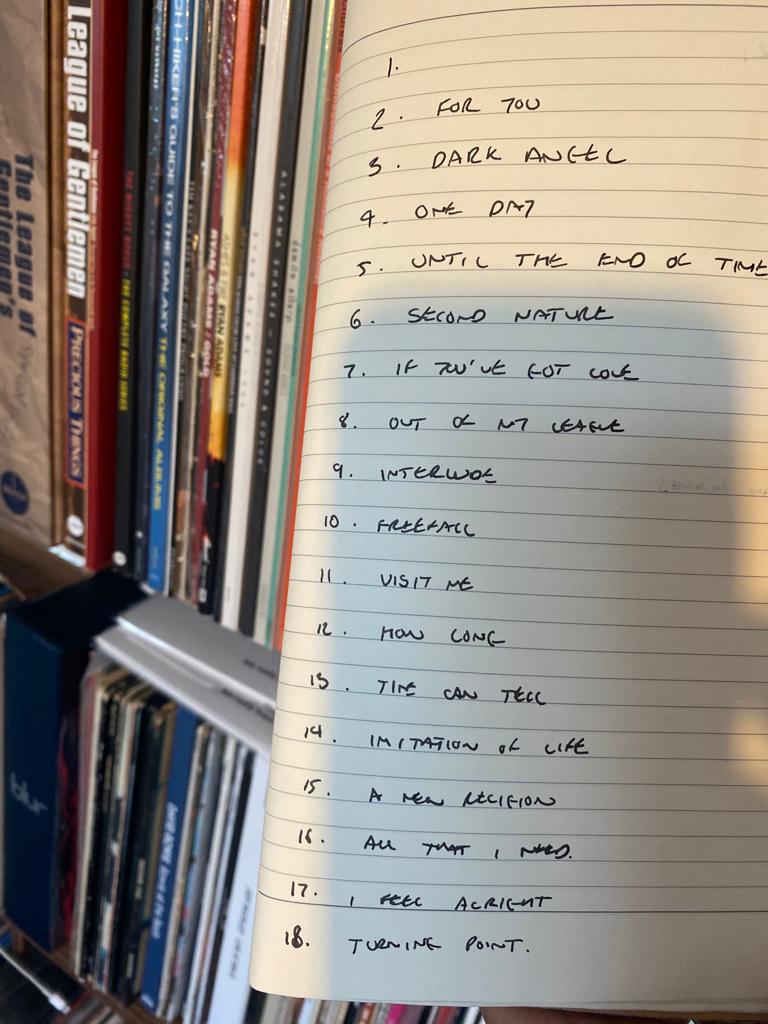 The League of
Gentlemen's
League of Gentlemen
PRECIOUS THINGS
THE MIGHTY BOOSH • THE COMPLETE RADIO SERIES
HITCH-HIKER'S GUIDE TO THE GALAXY THE ORIGINAL ALBUMS
RYAN ADAMS / GOLD
ASHES & FIRE RYAN ADAMS
RYAN ADAMS
ALABAMA SHAKES – SOUND & COLOR
blur
1.
2. FOR YOU
3. DARK ANGEL
4. ONE DAY
5. UNTIL THE END OF TIME
6. SECOND NATURE
7. IF YOU'VE GOT LOVE
8. OUT OF MY LEAGUE
9. INTERLUDE
10. FREEFALL
11. VISIT ME
12. HOW LONG
13. TIME CAN TELL
14. IMITATION OF LIFE
15. A NEW RELIGION
16. ALL THAT I NEED.
17. I FEEL ALRIGHT
18. TURNING POINT.